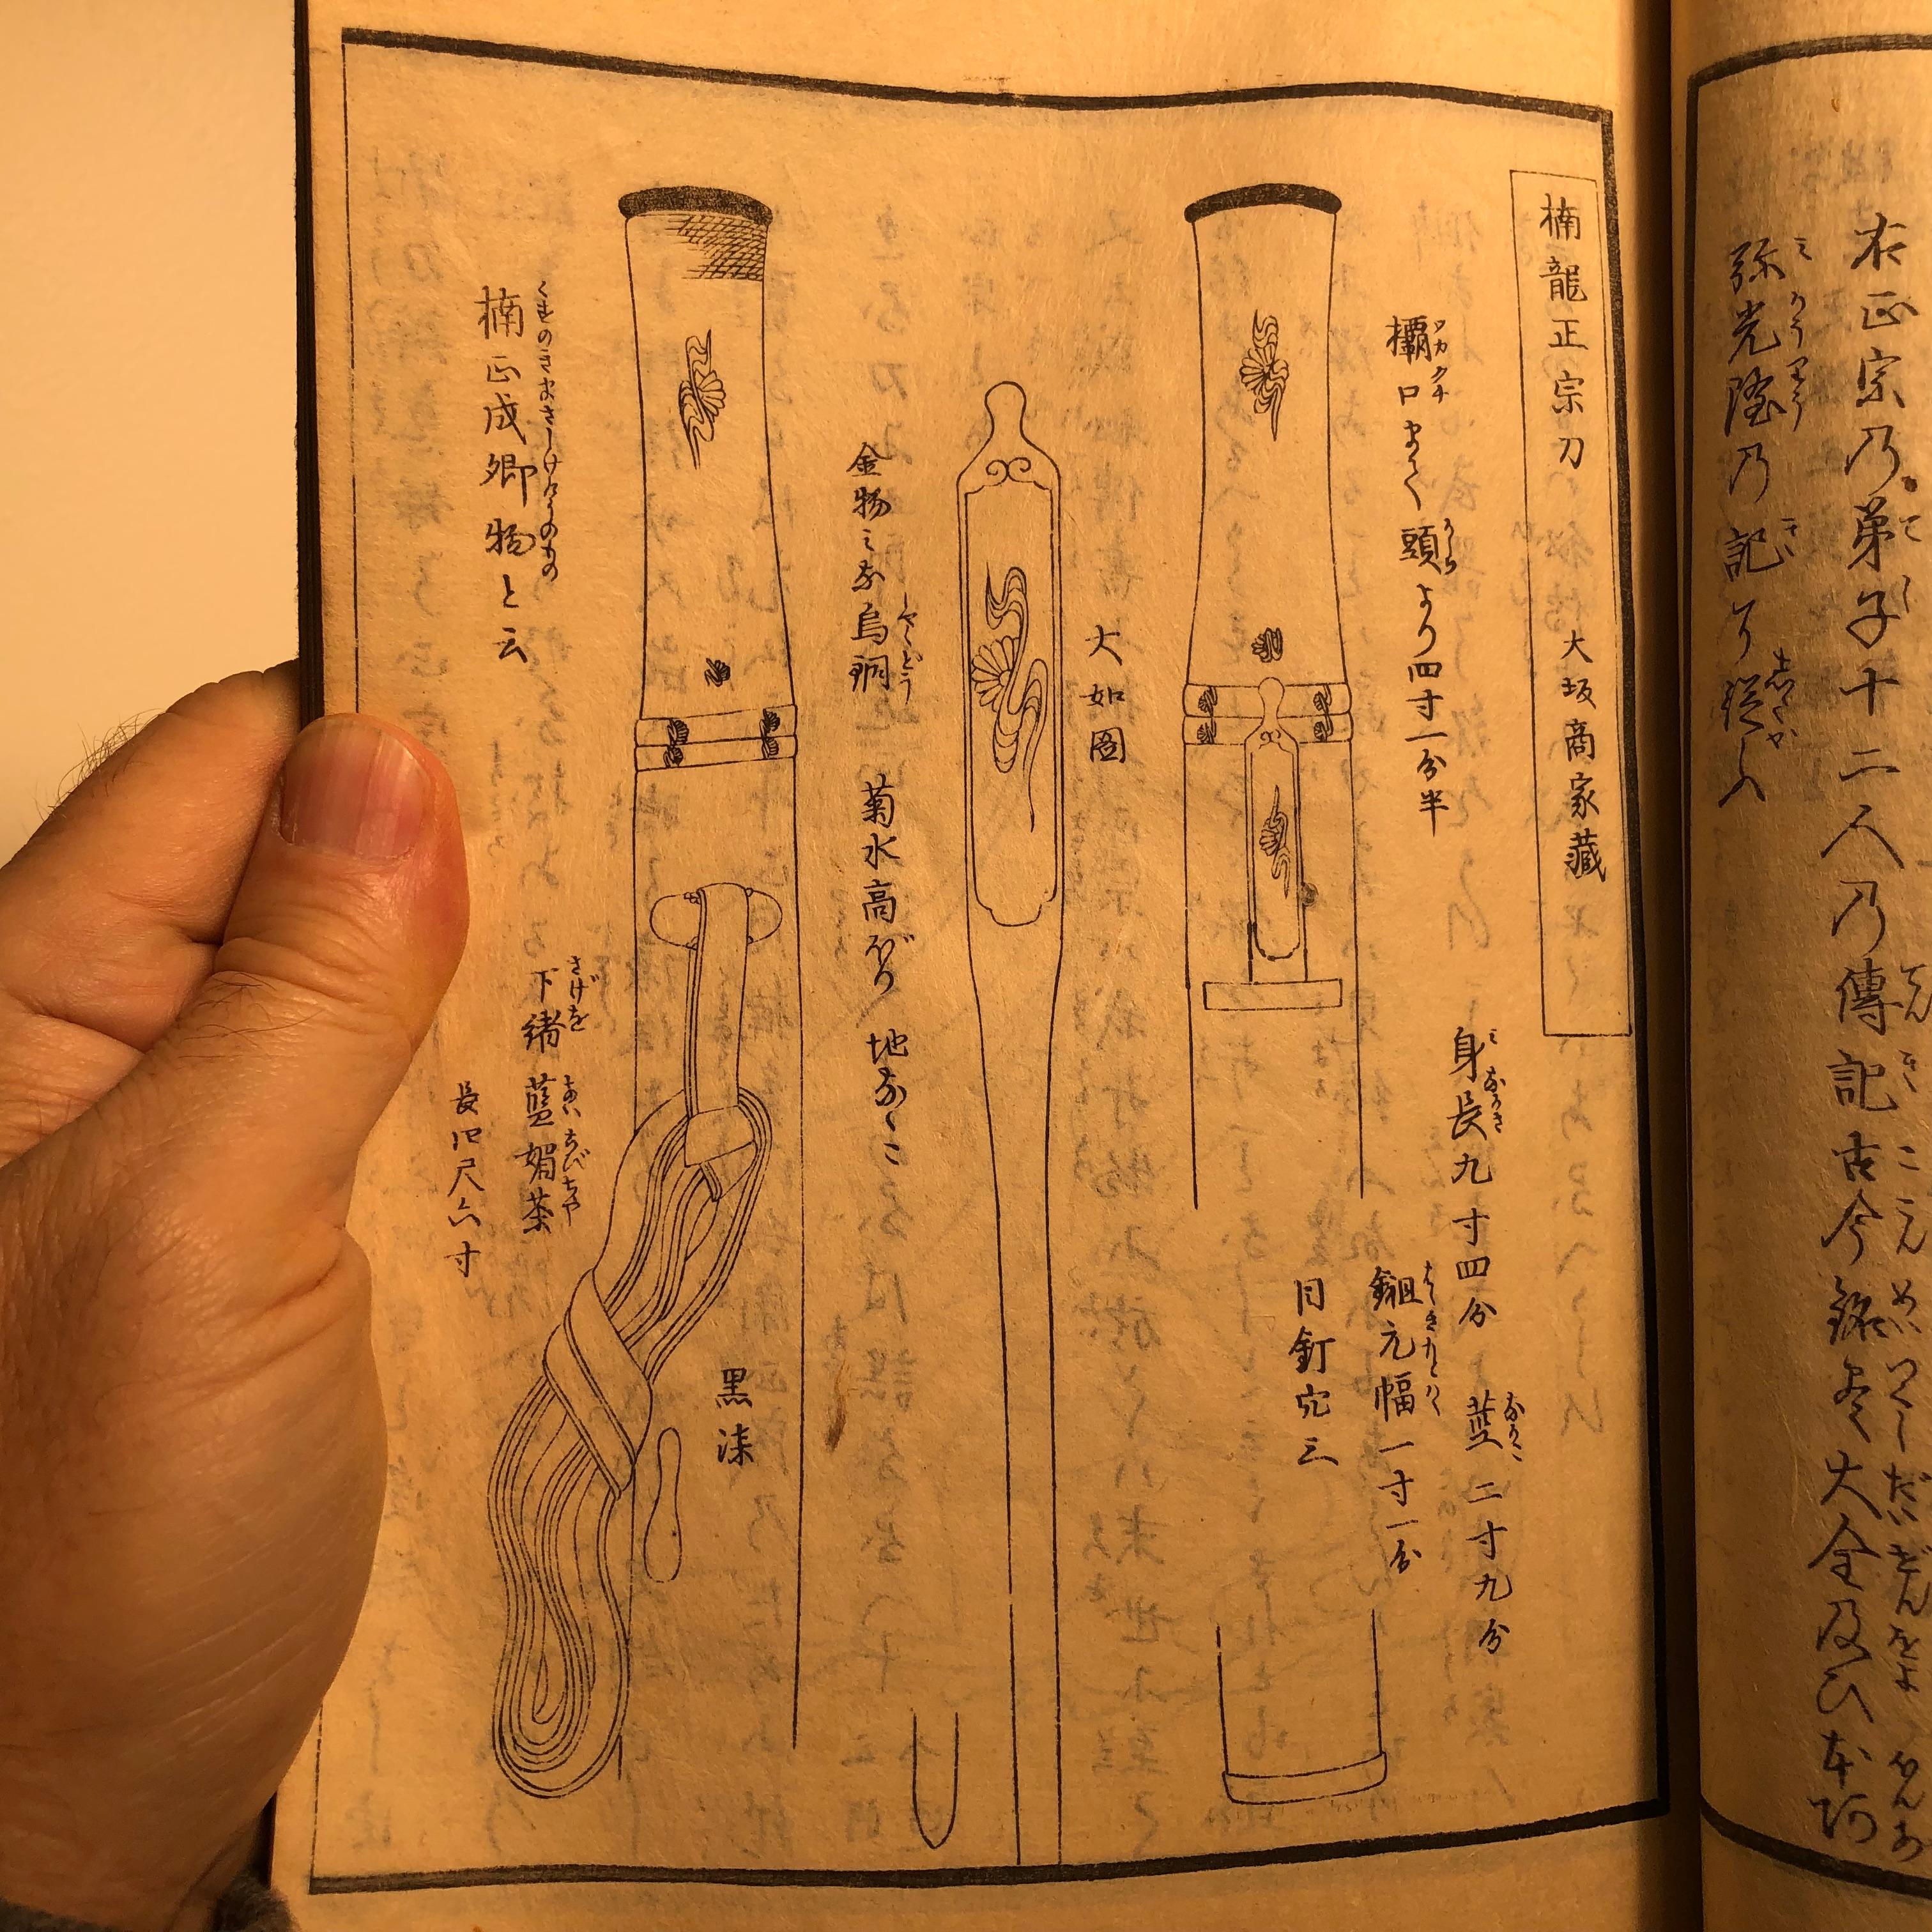 右正宗乃弟子十二人乃傳記古今銘尽大全及ひ本阿
弥光隆乃記に従ふ
楠龍正宗刀 大坂商家藏
欛口まて頭より四寸一分半
身長九寸四分 茎二寸九分
鎺元幅一寸一分
目釘穴三
大如圖
金物ミな烏銅 菊水高ぼり 地なゝこ
黒漆
楠正成卿物と云
下緒藍媚茶
長四尺六寸